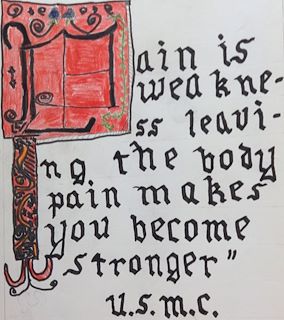 Pain is
weakne-
ss leavi-
ng the body
pain makes
you become
stronger"
U.S.M.C.